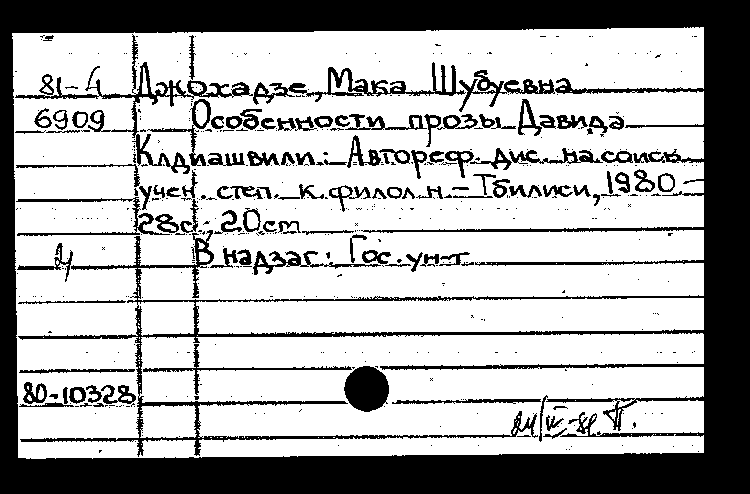 81-4 Джохадзе, Мака Шубуевна
6909 Особенности прозы Давида
Клдиашвили: Автореф. дис. на соиск.
учен. степ. к. филол. н. - Тбилиси, 1980 -
28с.; 20 cm
В надзаг.: Гос. ун-т
80-10328